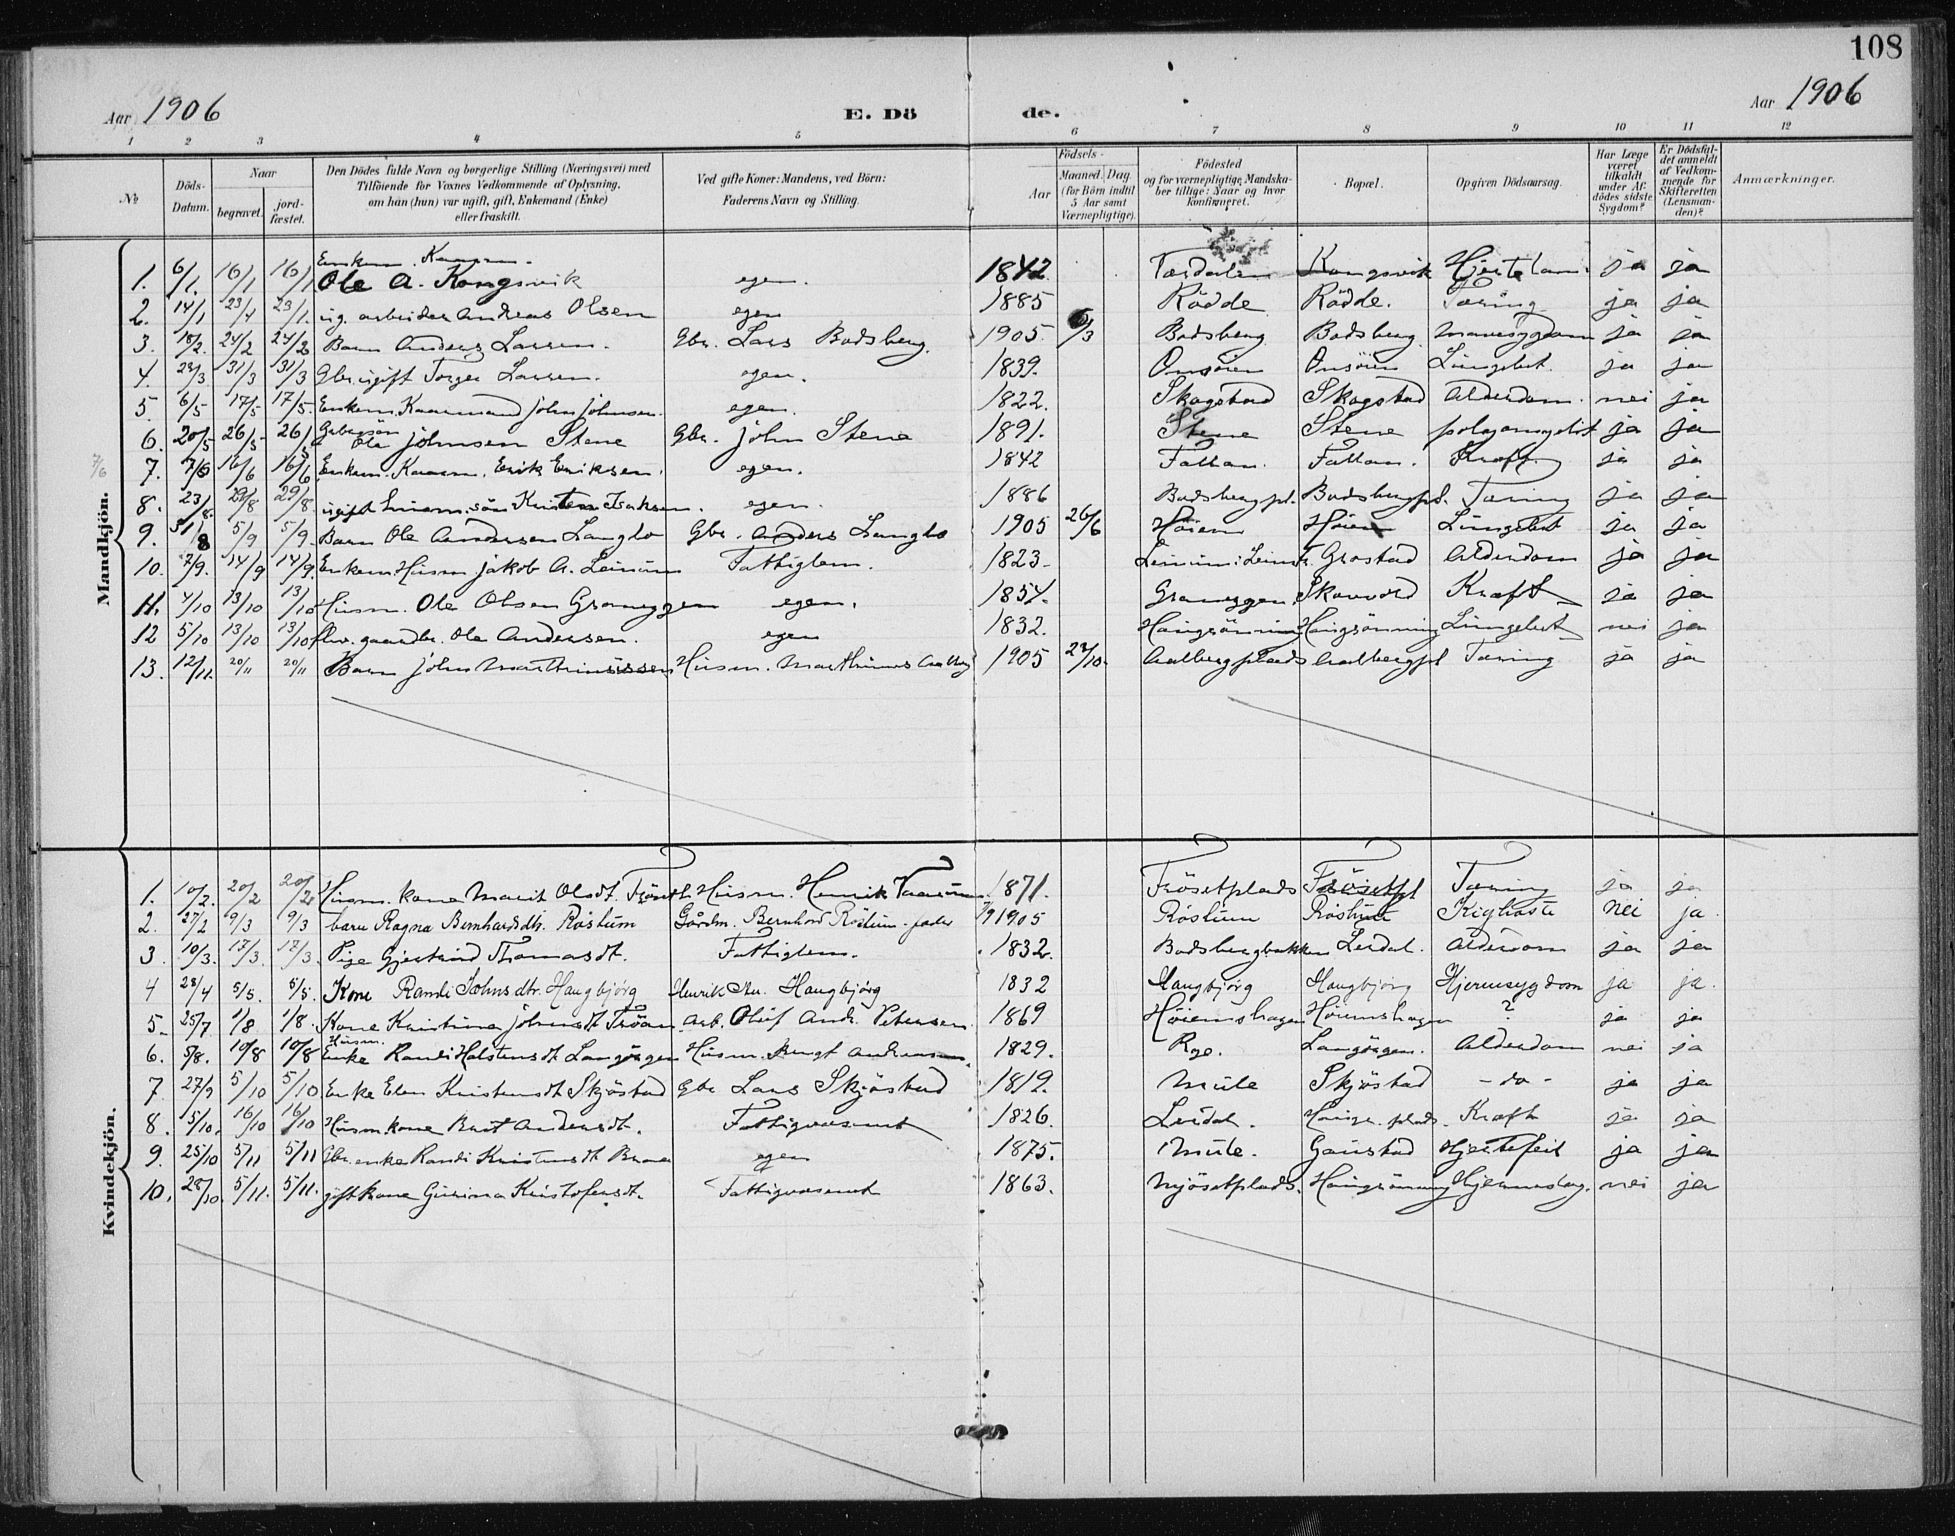 108
Aar 1906
E. Dö de.
Aar 1906
1 2 3 4 5 6 7 8 9 10 11 12
№
Döds-Datum.
Naar
begravet.
jord-fæstet.
Den Dödes fulde Navn og borgerlige Stilling (Næringsvei) med
Tilföiende for Voxnes Vedkommende af Oplysning,
om han (hun) var ugift, gift, Enkemand (Enke)
eller fraskilt.
Ved gifte Koner: Mandens, ved Börn:
Faderens Navn og Stilling.
Födsels-
Aar
Maaned. Dag.
(for Börn indtil
5 Aar samt
Værnepligtige).
Födested
og for værnepligtige Mandska-
ber tillige: Naar og hvor
konfirmeret.
Bopæl.
Opgiven Dödsaarsag.
Har Læge
været
tilkaldt
under Af-
dödes sidste
Sygdom?
Er Dödsfal-
det anmeldt
af Vedkom-
mende for
Skifteretten
(Lensman-
den)?
Anmærkninger.
Mandkjön.
1. 6/1. 16/1 16/1 Enkem. Kaarm. Ole A. Kongsvik egen. 1842 Kongsvik ja ja
2. 14/1 23/1 23/1. ug. arbeider Andreas Olsen egen 1885 Rödde Rödde. Tæring ja ja
3. 18/2. 24/2 24/2 Barn Anders Larsen. Gbr. Lars Bodsberg. 1905. 6/3 Bodsberg Bodsberg. Mavesygdom ja ja
4. 23/3 31/3 31/3 Gbr. ugift Torger Larsen. egen. 1839. Onsöien Onsöien Lungebet. ja ja
5. 6/5 17/5 17/5 Enkem. Kaarmand John Johnsen. egen. 1822. Skogstad Skogstad Alderdom. nei ja
6. 20/5 26/5 26/5 Gbr.sön Ole Johnsen Stene Gbr. John Stene 1891. Stene Stene ja ja
7/6
7. 7/6 16/6 16/6 Enkem. Kaarm. Erik Eriksen. egen. 1842 Fallan. Fallan. Kræft ja ja
8. 23/8. 29/8 29/8. ugift Husm. sön Kristen Isaksen. egen. 1886 Bodsberg pl. Bodsberg pl. Tæring ja ja
9. 31/8 5/9 5/9. Barn Ole Andersen Langlo Gbr. Anders Langlo 1905 26/6 Höiem Höiem Lungebet ja ja
10. 7/9. 14/9 14/9. Enkem. Husm Jakob A. Leinum Fattiglem. 1823. Grostad Alderdom ja ja
11. 4/10 13/10 13/10 Husm. Ole Olsen Graneggen egen. 1854. Graneggen Skovvold Kræft ja ja
12 5/10 13/10 13/10 gaardbr. Ole Andersen. egen 1832. Haugrönning Haugrönning Lungebet nei ja
13. 12/11. 20/11 20/11 Barn John Marthinussen Husm. Marthinus Aalberg 1905 29/10. Aalbergplads Aalbergpl Tæring ja ja
Kvindekjön.
1. 10/2. 20/2 20/2 Husm. kone Marit Olsdt. Fröset Husm. Henrik 1871. Frösetplads Frösetpl Tæring ja ja
2. 27/2 9/3 9/3 barn Ragna Bernhardsdtr. Röstum Gårdm. Bernhard Röstum. fader 1905 Röstum Röstum Kighoste Nei ja
3. 10/3. 17/3. 17/3. Pige Gjertrud Thomasdt. Fattiglem. 1832. Bodsbergbakken Leirdal. Alderdom ja ja
4 28/4 5/5. 5/5. Kone Randi Johnsdtr. Haugbjörg Henrik An. Haugbjörg 1832 Haugbjörg Haugbjörg Hjernesygdom ja ja.
5. 25/7 1/8 1/8. Kone Kristina Johnsdt Tröan Arb. Oluf Andr. Petersen 1869 Höiemshagen Höiemshagen ? ja ja
6. 5/8. 10/8 10/8 Husm. Enke Randi Halstensdt Langörgen Husm. Bengt Andersen 1829. Rye. Langörgen. Alderdom nei ja
7 27/9 5/10 5/10 Enke Elen Kristensdt Skjöstad Gbr Lars Skjöstad 1819. Mule Skjöstad - do - ja ja
8. 5/10. 16/10 16/10 Husm.kone Berit Andersdt. Fattigvæsenet 1826. Leirdal. Kræft ja ja
9. 25/10 5/11 5/11 Gbr.enke Randi Kristensdt egen 1875. Mule. Gaustad Hjertefeil ja ja
10. 28/10. 5/11. 5/11. gift kone Gurina Kristofersdt. Fattigvæsenet 1863. Mjösetplads. Haugrönning Hjerneslag. nei ja